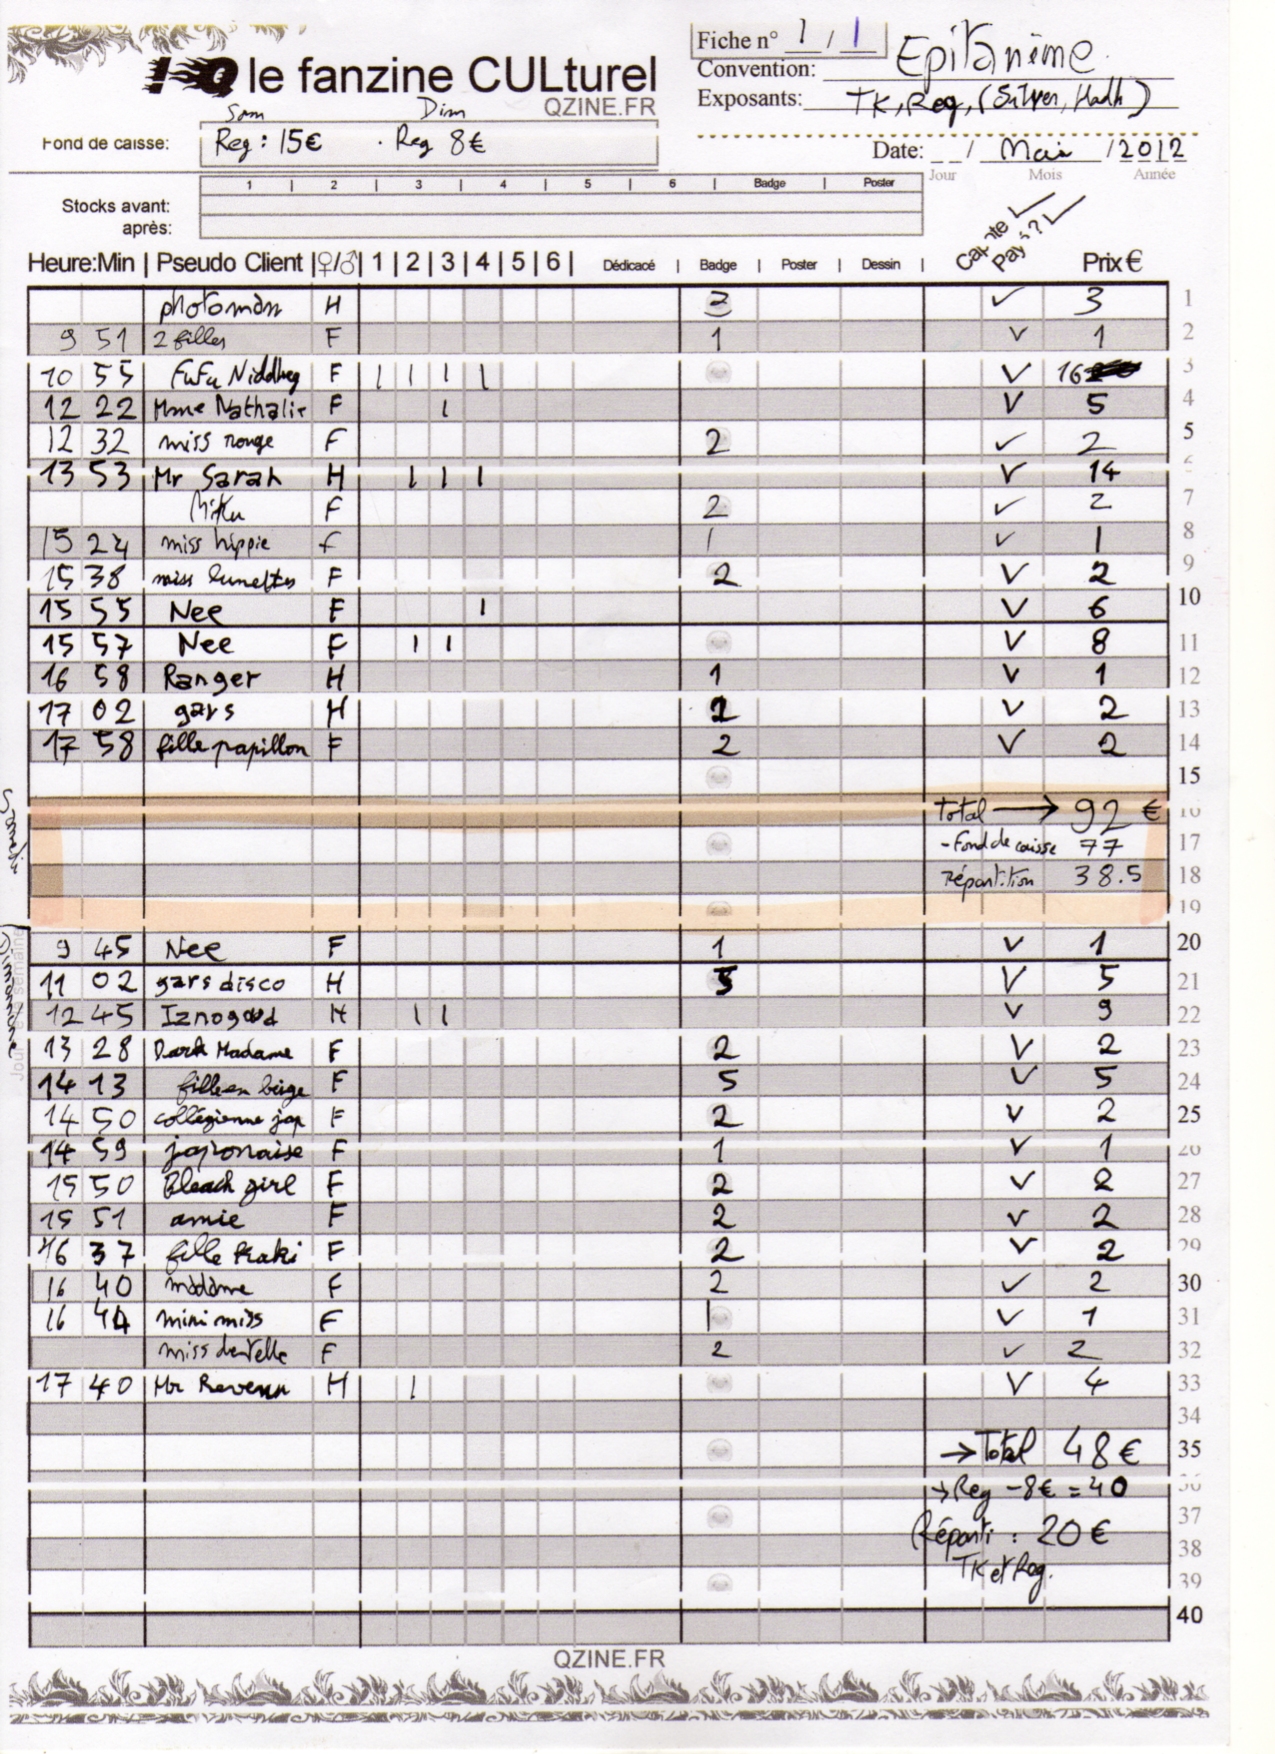 Fiche n° 1 / 1
IQ le fanzine CULturel
QZINE.FR
Convention: Epitanime
Exposants: TK, Reg, (Silver, Hadh)
Sam Dim
Fond de caisse: Reg : 15€ . Reg 8€
Date: __/ Mai /2012
Jour Mois Année
1 | 2 | 3 | 4 | 5 | 6 | Badge | Poster
Stocks avant:
après:
Heure:Min | Pseudo Client |♀/♂| 1 | 2 | 3 | 4 | 5 | 6 | Dédicacé | Badge | Poster | Dessin | Payé? Prix €
photoman H 2 ✓ 3 1
9 51 2 filles F 1 ✓ 1 2
10 55 FuFu Niddheg F | | | | ✓ 16 3
12 22 Mme Nathalie F | ✓ 5 4
12 32 miss rouge F 2 ✓ 2 5
13 53 Mr Sarah H | | | ✓ 14
Miku F 2 ✓ 2 7
15 24 miss hippie f 1 ✓ 1 8
15 38 miss lunettes F 2 ✓ 2 9
15 55 Nee F | ✓ 6 10
15 57 Nee F | | ✓ 8 11
16 58 Ranger H 1 ✓ 1 12
17 02 gars H 2 ✓ 2 13
17 58 fille papillon F 2 ✓ 2 14
15
Total → 92 € 16
- Fond de caisse 77 17
répartition 38.5 18
19
9 45 Nee F 1 ✓ 1 20
11 02 gars disco H 5 ✓ 5 21
12 45 Iznogoud H | | ✓ 9 22
13 28 Dark Madame F 2 ✓ 2 23
14 13 fille en beige F 5 ✓ 5 24
14 50 collégienne jap F 2 ✓ 2 25
14 59 japonaise F 1 ✓ 1 26
15 50 Bleach girl F 2 ✓ 2 27
15 51 amie F 2 ✓ 2 28
16 37 fille kaki F 2 ✓ 2 29
16 40 madame F 2 ✓ 2 30
16 44 mini miss F 1 ✓ 1 31
miss dentelle F 2 ✓ 2 32
17 40 Mr Revenu H | ✓ 4 33
34
→ Total 48 € 35
→ Reg - 8€ = 40 36
Réparti : 20 € 37
38
TK et Reg. 39
40
QZINE.FR